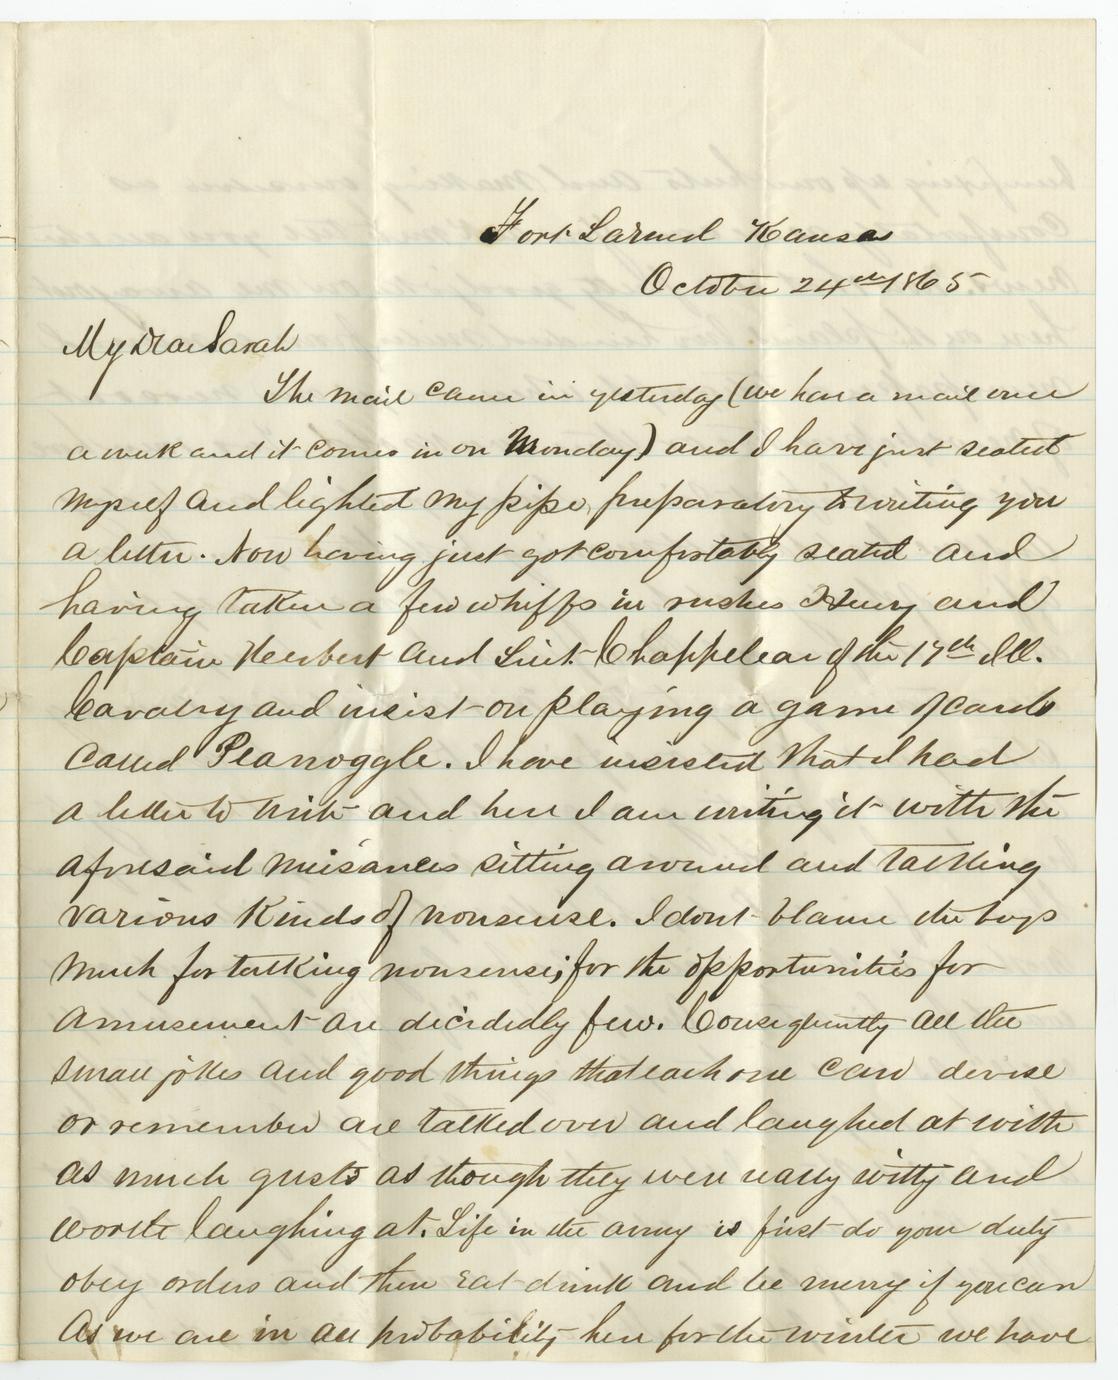 Fort Larned Kansas
October 24th 1865
My Dear Sarah
The mail came in yesterday (we have a mail once
a week and it comes in on Monday) and I have just seated
myself and lighted my pipe, preparatory to writing you
a letter. Now having just got comfortably seated and
having taken a few whiffs in rushes Henry and
Captain Herbert and Lieut. Chappelear of the 17th Ill.
Cavalry and insist on playing a game of cards
called Peanoggle. I have insisted that I had
a letter to write and here I am writing it with the
aforesaid nuisances sitting around and talking
various kinds of nonsense. I dont blame the boys
much for talking nonsense; for the opportunities for
amusement are decidedly few. Consequently all the
small jokes and good things that each one can devise
or remember are talked over and laughed at with
as much gusto as though they were really witty and
worth laughing at. Life in the army is first do your duty
obey orders and then eat drink and be merry if you can
As we are in all probability here for the winter we have